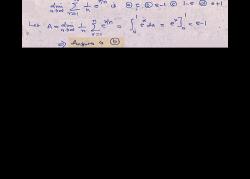 lim n→∞ Σ r=1 n 1/n e^{r/n} is (a) e (b) e-1 (c) 1-e (d) e+1
Let A = lim n→∞ 1/n Σ r=1 n e^{r/n} = ∫₀¹ e^x dx = e^x]₀¹ = e-1
⇒ Answer is (b)